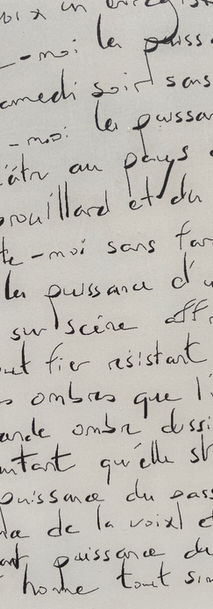 voix un enregist
-moi la puiss
samedi soir sans
-moi la puissan
âtre au pays
brouillard et du
te-moi sans far
la puissance d'u
sur scène aff
ut fier résistant
s ombres que l'i
ande ombre dessi
ntant qu'elle s
puissance du pass
de la voix et
ant puissance du
home tout sim